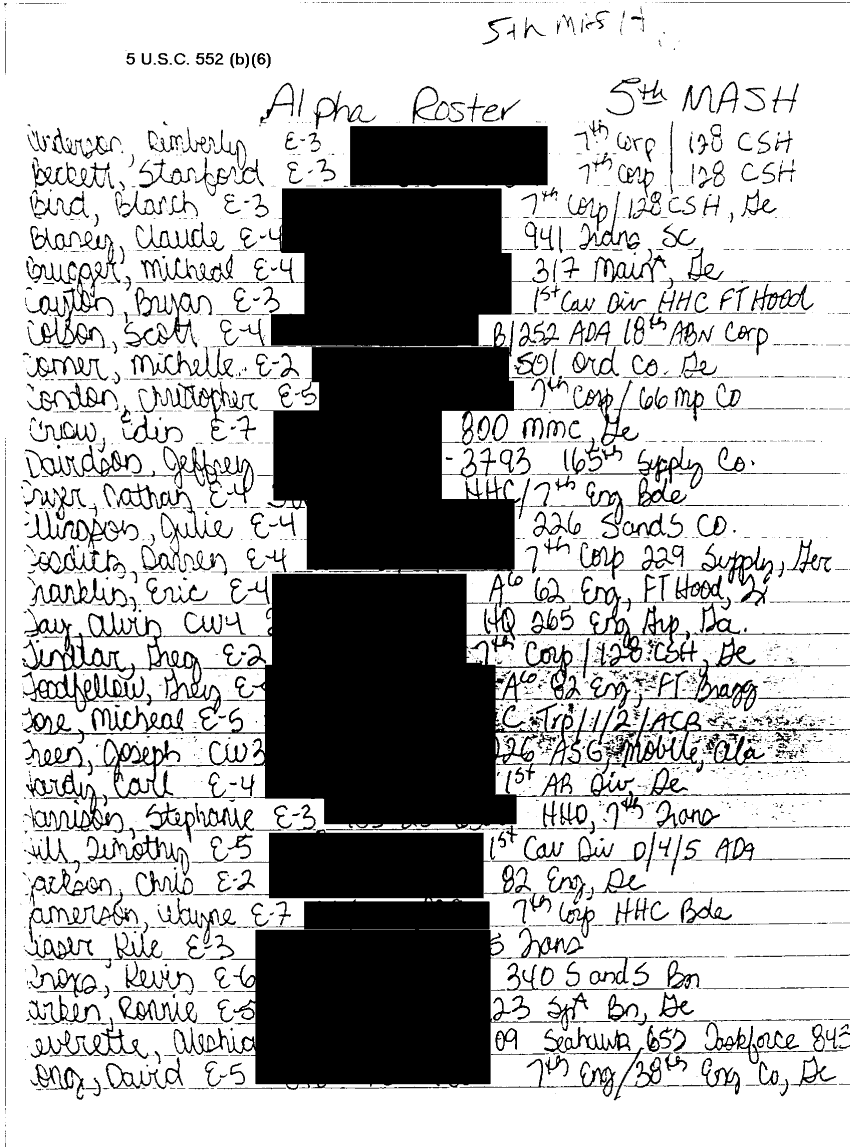 5th MASH
5 U.S.C. 552 (b)(6)
Alpha Roster 5th MASH
Anderson, Kimberly E-3 7th Corp / 128 CSH
Beckett, Stanford E-3 7th Corp / 128 CSH
Bird, Blanch E-3 7th Corp/128 CSH, Ge
Blaney, Claude E-4 941 Trans, SC
Brugger, Micheal E-4 317 Maint, Ge
Cayton, Bryan E-3 1st Cav Div HHC FT Hood
Colson, Scott E-4 B/252 ADA 18th ABN Corp
Comer, Michelle E-2 501 Ord Co. Ge
Condon, Christopher E-5 7th Corp/66 MP Co
Crow, Edin E-7 800 MMC, Ge
Davidson, Jeffrey 165th Supply Co.
Nathan E-4 HHC/7th Eng Bde
Ellingson, Julie E-4 226 S and S Co.
Darren E-4 7th Corp 229 Supply, Ger
Franklin, Eric E-4 A Co 62 Eng, FT Hood, Tx
Gay, Alvin CW4 HQ 265 Eng Grp, Ga.
Greg E-2 7th Corp/128 CSH, Ge
Goodfellow, Greg E- A Co 82 Eng, FT Bragg
Gore, Micheal E-5 C Trp/1/2/ACR
Green, Joseph CW3 226 ASG, Mobile, Ala
Hardy, Carl E-4 1st AR Div, Ge
Harrison, Stephanie E-3 HHD, 7th Trans
Hill, Timothy E-5 1st Cav Div D/4/5 ADA
Jackson, Chris E-2 82 Eng, Ge
Jamerson, Wayne E-7 7th Corp HHC Bde
Kile E-3 5 Trans
Kevin E-6 340 S and S Bn
Ronnie E-5 23 Spt Bn, Ge
Leverette, Aleshia 09 Seahawk 652 Taskforce 843
Long, David E-5 7th Eng/38th Eng Co, Ge